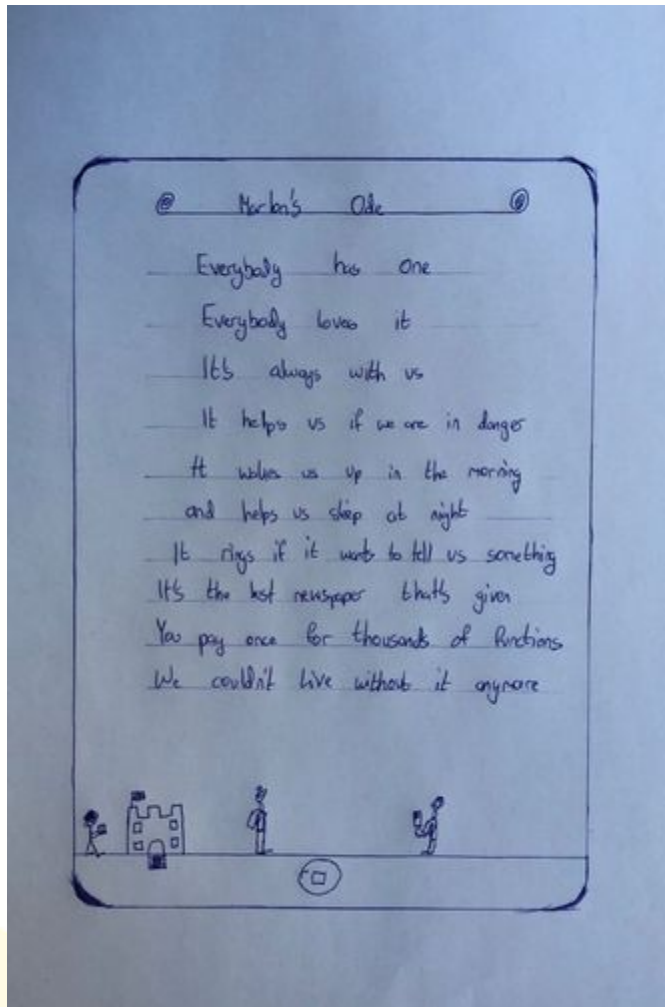 Marlon's Ode
Everybody has one
Everybody loves it
It's always with us
It helps us if we are in danger
It wakes us up in the morning
and helps us sleep at night
It rings if it wants to tell us something
It's the best newspaper that's given
You pay once for thousands of functions
We couldn't live without it anymore